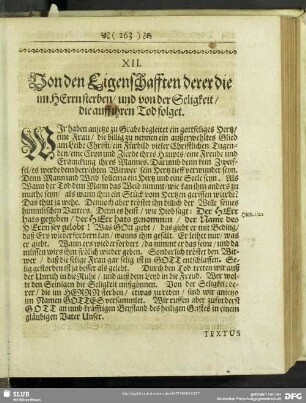 ( 263 )
XII.
Von den Eigenschafften derer die
im HErrn sterben / und von der Seligkeit /
die auff ihren Tod folget.
WIr haben anjetzo zu Grabe begleitet ein gottseliges Hertz /
eine Frau / die billig zu nennen ein außerwehltes Glied
am Leibe Christi / ein Fürbild vieler Christlichen Tugen-
den / eine Cron und Zierde ihres Haupts / eine Freude und
Ergötzung ihres Mannes. Darumb denn kein Zweif-
fel / es werde dem betrübten Witwer sein Hertz tieff verwundet seyn.
Denn Mann und Weib sollen ein Hertz und eine Seele seyn. Als
Wann der Tod dem Mann das Weib nimmt / wie kan ihm anders zu
muthe seyn / als wann ihm ein Stück vom Hertzen gerissen würde?
Das thut ja wehe. Dennoch aber tröstet ihn billich der Wille seines
himmlischen Vatters. Denn es heist / wie Hiob sagt: Der HErr
hats gegeben / der HErr hats genommen / der Name des
HErrn sey gelobt! Was GOtt giebt / das giebt er mit Beding /
daß Ers wieder fordern kan / wanns ihm gefält. Er leihet nur / was
er giebt. Wann ers wieder fordert / da nimmt er das seine / und da
müssen wirs ihm frölich wieder geben. Sonderlich tröstet den Wit-
wer / daß die selige Frau gar selig ist in GOTT entschlaffen. Se-
lig gestorben ist ja besser als gelebt. Durch den Tod treten wir auß
der Unruh in die Ruhe / und auß dem Leyd in die Freud. Wer wol-
te den Seinigen die Seligkeit mißgönnen. Von der Seligkeit de-
rer / die im HERRN sterben / etwas zu reden / sind wir anjetzo
im Namen GOTTES versammlet. Wir ruffen aber zuforderst
GOTT an umb kräfftigen Beystand des heiligen Geistes in einem
gläubigen Vater Unser.
TEXTUS
SLUB